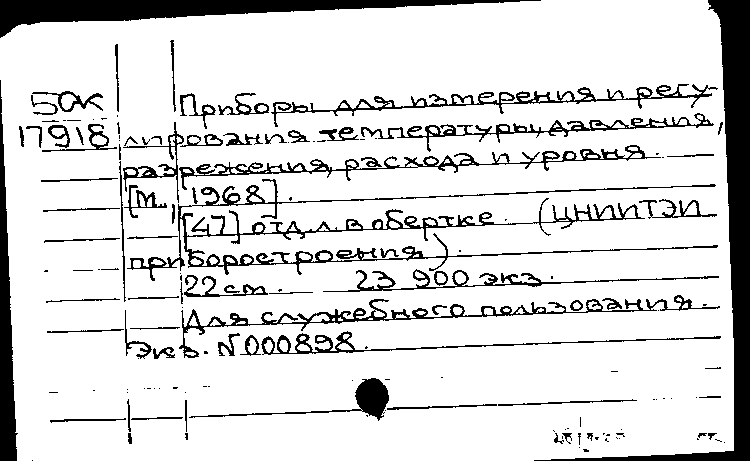 50К Приборы для измерения и регу-
17918 лирования температуры, давления,
разрежения, расхода и уровня.
[М., 1968].
[47] отд.л. в обертке. (ЦНИИТЭИ
приборостроения).
22 см. 23 900 экз.
Для служебного пользования.
Экз. №000898.